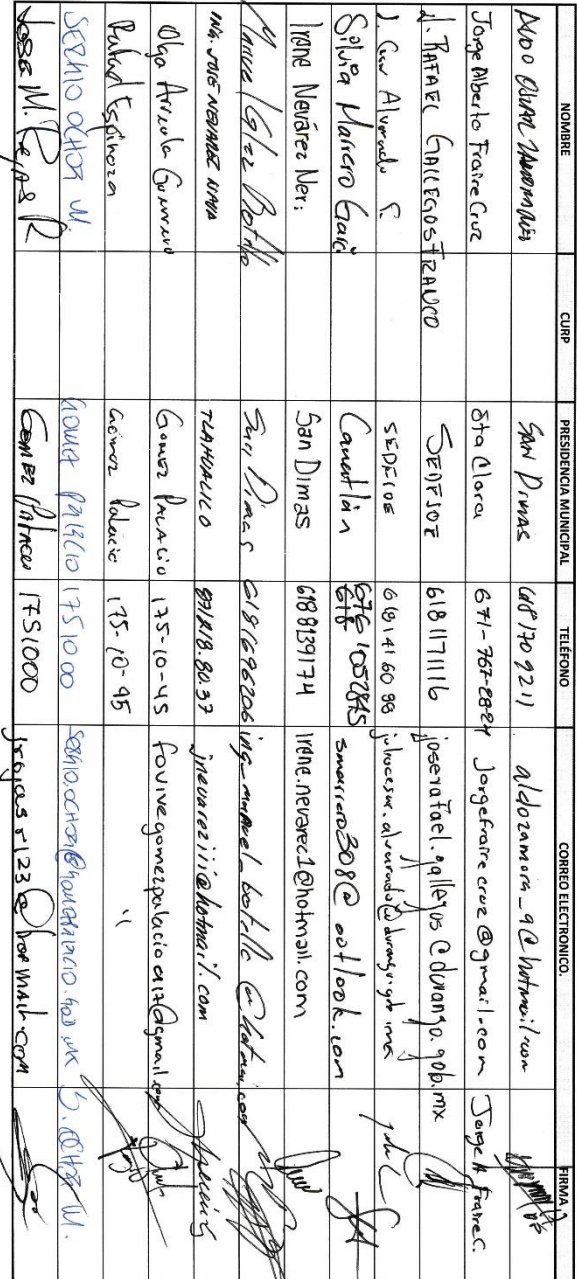 NOMBRE CURP PRESIDENCIA MUNICIPAL TELÉFONO CORREO ELECTRONICO. FIRMA
San Dimas 618 170 9211 aldozamora_9@hotmail.com
Jorge Alberto Fraire Cruz Sta Clara 671-767-2824 Jorgefrairecruz@gmail.com Jorge A Fraire C.
J. RAFAEL GALLEGOS FRANCO SEDESOE 6181171116 joserafael.gallegos@durango.gob.mx
J. Cesar Alvarado S. SEDESOE 618 141 60 98
Silvia Marrero Garc Canatlán 676 1052845 smarrero308@outlook.com
Irene Nevárez Neri San Dimas 6188139174 Irene.nevarec1@hotmail.com
Manuel Botello San Dimas 6181696206 ing_manuel_botello@hotmai.com
ING. JOSÉ NEVAREZ NAVA TLAHUALILO 871218.8037 jnevareziii@hotmail.com
Olga Arreola Guerrero Gomez PALACIO 175-10-45 fovivegomezpalacio a17@gmail.com
Rafael Espinoza Gómez Palacio 175-10-45 "
SERGIO OCHOA M. GOMEZ PALACIO 1751000 S. OCHOA M.
JOSE M. Rojas R GOMEZ PALACIO 1751000 jrojasr123@hotmail.com